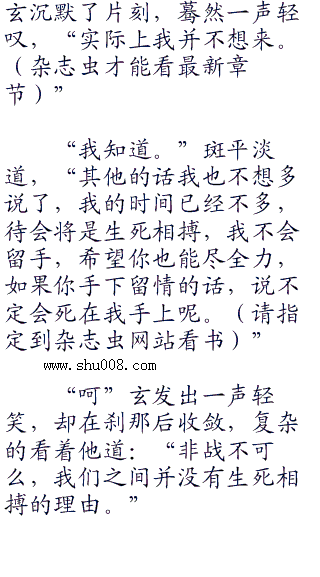 玄沉默了片刻，蓦然一声轻
叹，“实际上我并不想来。
（杂志虫才能看最新章
节）”
“我知道。”斑平淡
道，“其他的话我也不想多
说了，我的时间已经不多，
待会将是生死相搏，我不会
留手，希望你也能尽全力，
如果你手下留情的话，说不
定会死在我手上呢。（请指
定到杂志虫网站看书)”
www.shu008.com
“呵”玄发出一声轻
笑，却在刹那后收敛，复杂
的看着他道：“非战不可
么，我们之间并没有生死相
搏的理由。”